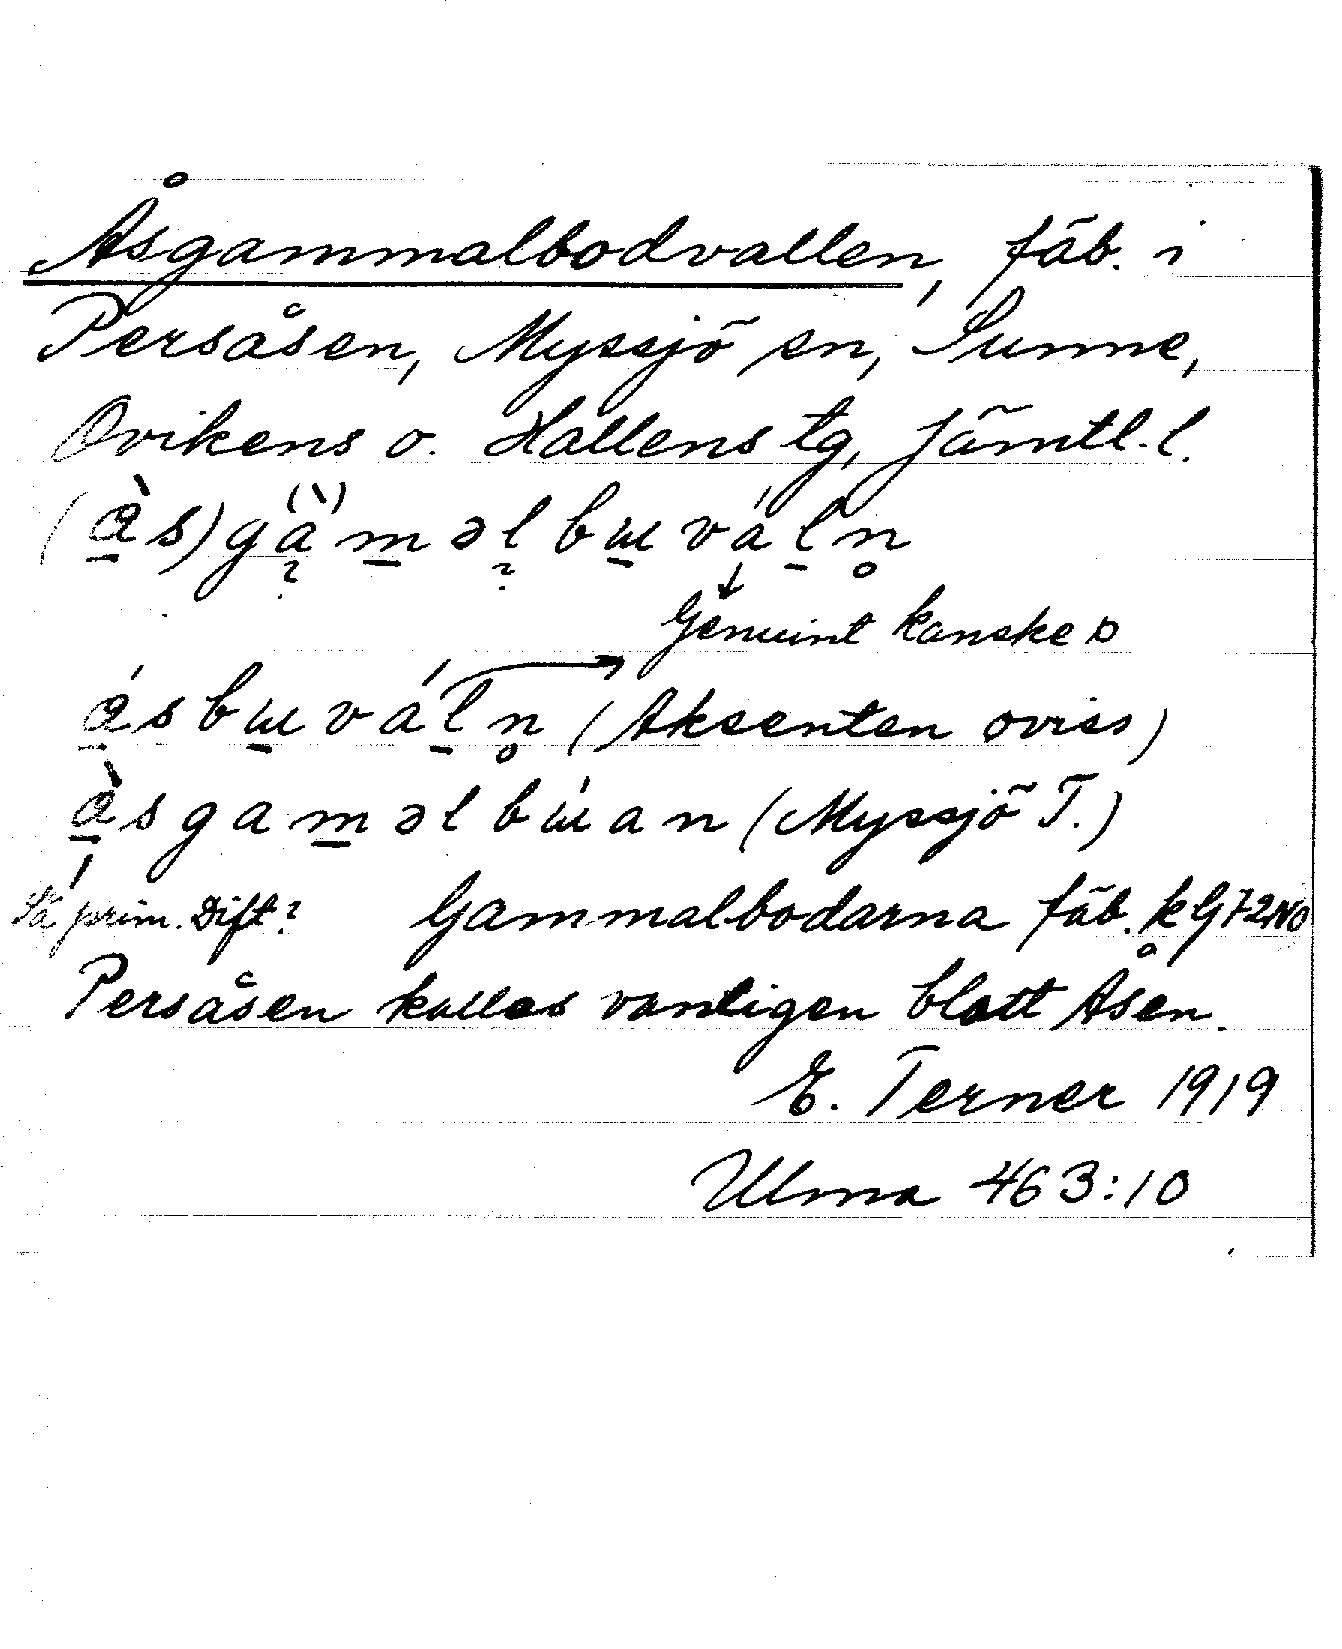 Åsgammalbodvallen, fäb. i
Persåsen, Myssjö sn, Sunne,
Ovikens o. Hallens tg, Jämtl. l.
(às)gàməl bɯválṇ
Genuint kanske
ásbɯválṇ (Aksenten oviss)
àsgaməlbɯ́an (Myssjö T.)
Så prim. Dift? Gammalbodarna fäb. k G72NO
Persåsen kallas vanligen blott Åsen.
E. Terner 1919
Ulma 463:10